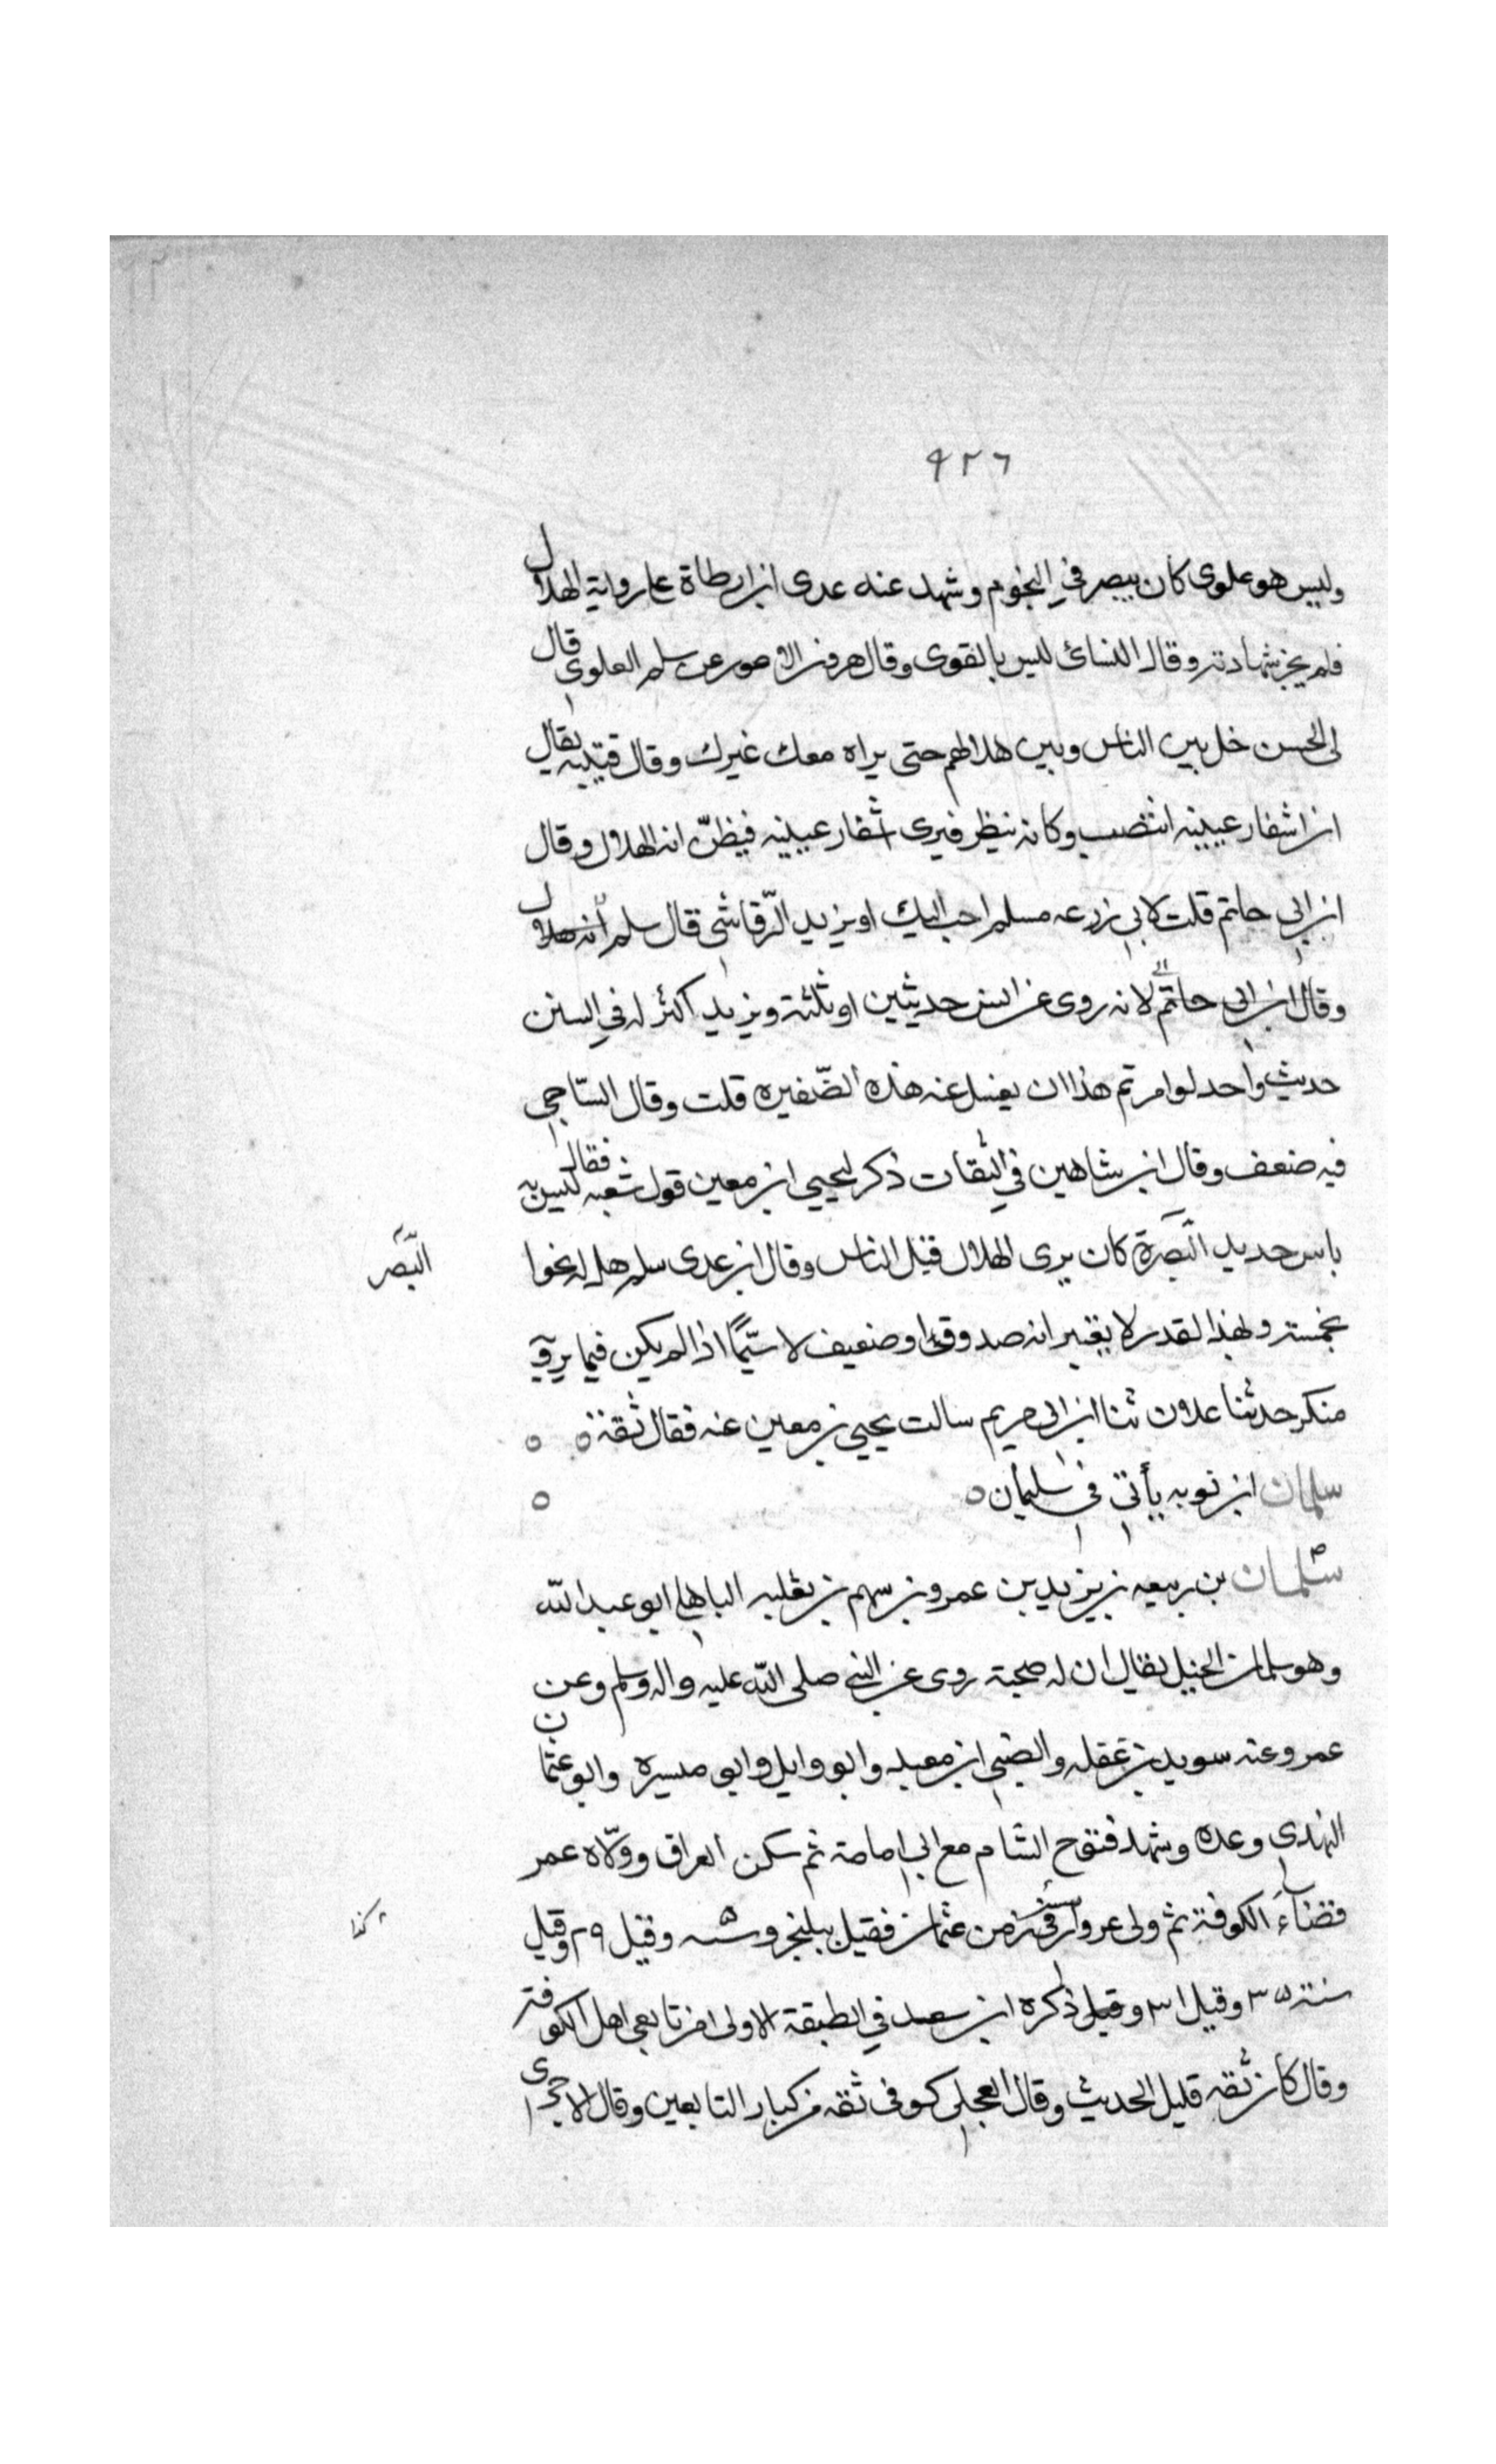 ٩٢٦
وليس هو علوى كان يبصر في النجوم وشهد عند عدى ابن ارطاة على رواية الهلال
فلم يجز شهادته وقال النسائى ليس بالقوى وقال هرون الاعور عن سلم العلوى قال
لى الحسن خل بين الناس وبين هلالهم حتى يراه معك غيرك وقال قتيبه يقال
ان اشفار عينيه انتصب وكانه ينظر فيرى اشفار عينيه فيظنّ انه الهلال وقال
ابن ابي حاتم قلت لابي زرعه مسلم احب اليك او يزيد الرّقاشى قال سلم
وقال ابن ابى حاتم لانه روى عن انس حديثين او ثلثة ويزيد اكثر له في السنن
حديث واحد لو امرتم هذا ان يغسل عنه هذه الصّفيره قلت وقال السّاجي
فيه ضعف وقال ابن شاهين في الثقات ذكر ليحيي ابن معين قول شعبه فقال ليس به
باس حديد البصرة كان يرى الهلال قبل الناس وقال ابن عدى سلم نحوا
البّصر
خمسة وبهذا القدر لا يعتبر انه صدوق او ضعيف لا سيّما اذا لم يكن فيما يرويه
منكر حدثنا علان ثنا ابن ابى مريم سالت يحيي بن معين عنه فقال ثقة ٥ ٥
سلمان ابن توبه يأتى فى سليمان ٥ ٥
سلمان بن ربيعه بن يزيد بن عمرو بن سهم بن ثعلبه الباهلى ابو عبد اللّه
وهو سلمان الخيل يقال ان له صحبة روى عن النبى صلى اللّه عليه واله وسلم وعن
عمر وعنه سويد بن غفله والصبي ابن معبد وابو وايل وابو ميسره وابو عثمان
النهدي وعده وشهد فتوح الشام مع ابي امامة ثم سكن العراق وولّاه عمر
قضاءَ الكوفة ثم ولى من عثمان فقتل ببلنجر وقيل ٢٩ وقيل
كذا
سنة ٣٥ وقيل ٣١ وقيل ذكره ابن سعد في الطبقة الاولى من تابعى اهل الكوفة
وقال كان ثقه قليل الحديث وقال العجلى كوفى ثقه من كبار التابعين وقال الاجرى